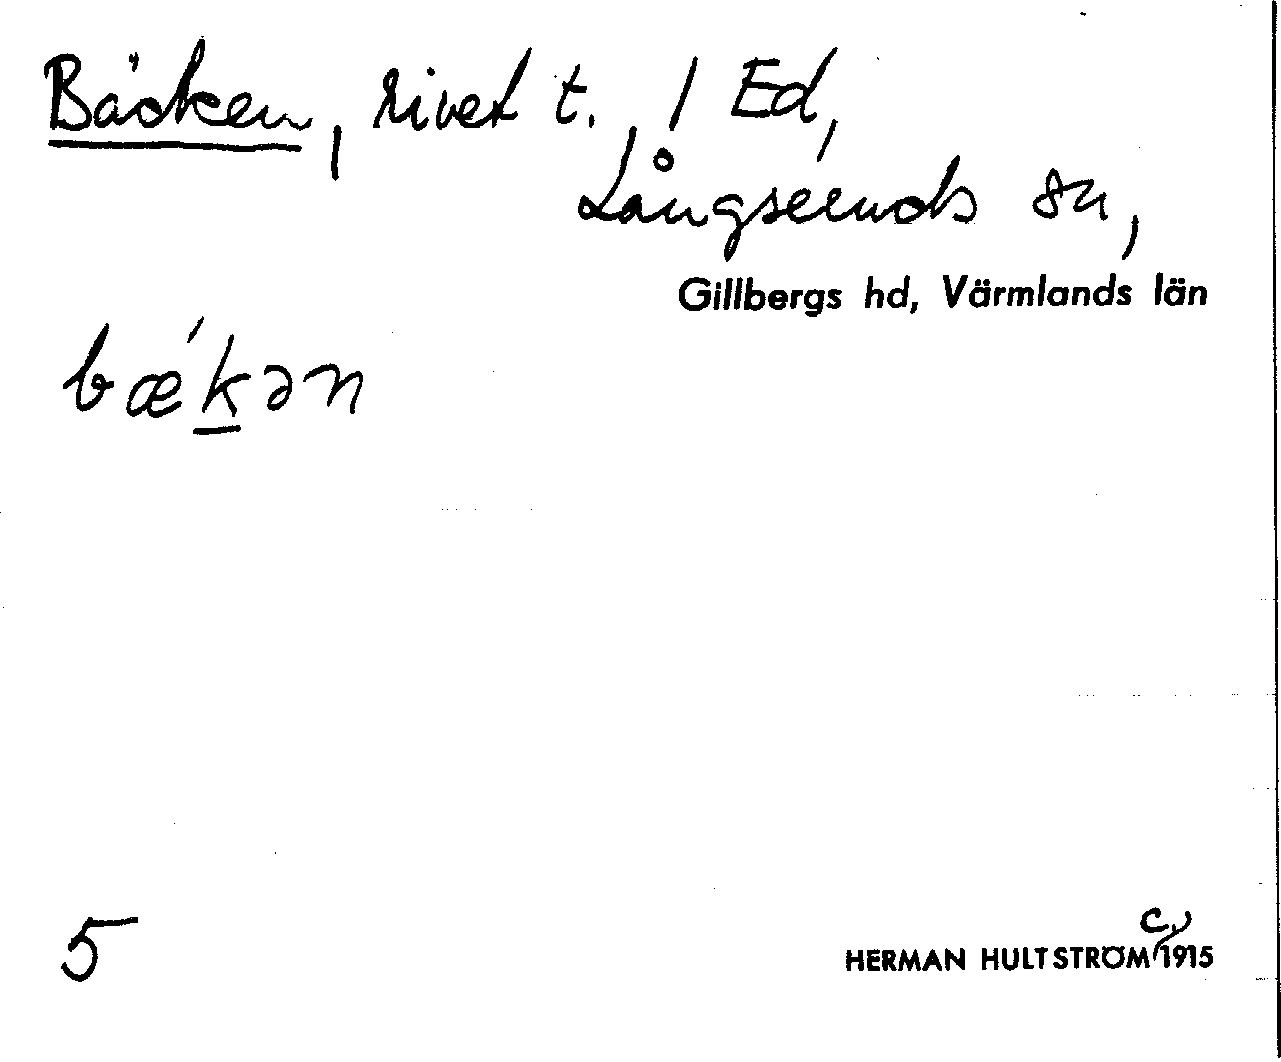 Bäcken, rivet t. / Ed,
Långseruds sn,
Gillbergs hd, Värmlands län
bæ´kən
5
HERMAN HULTSTRÖM c. 1915